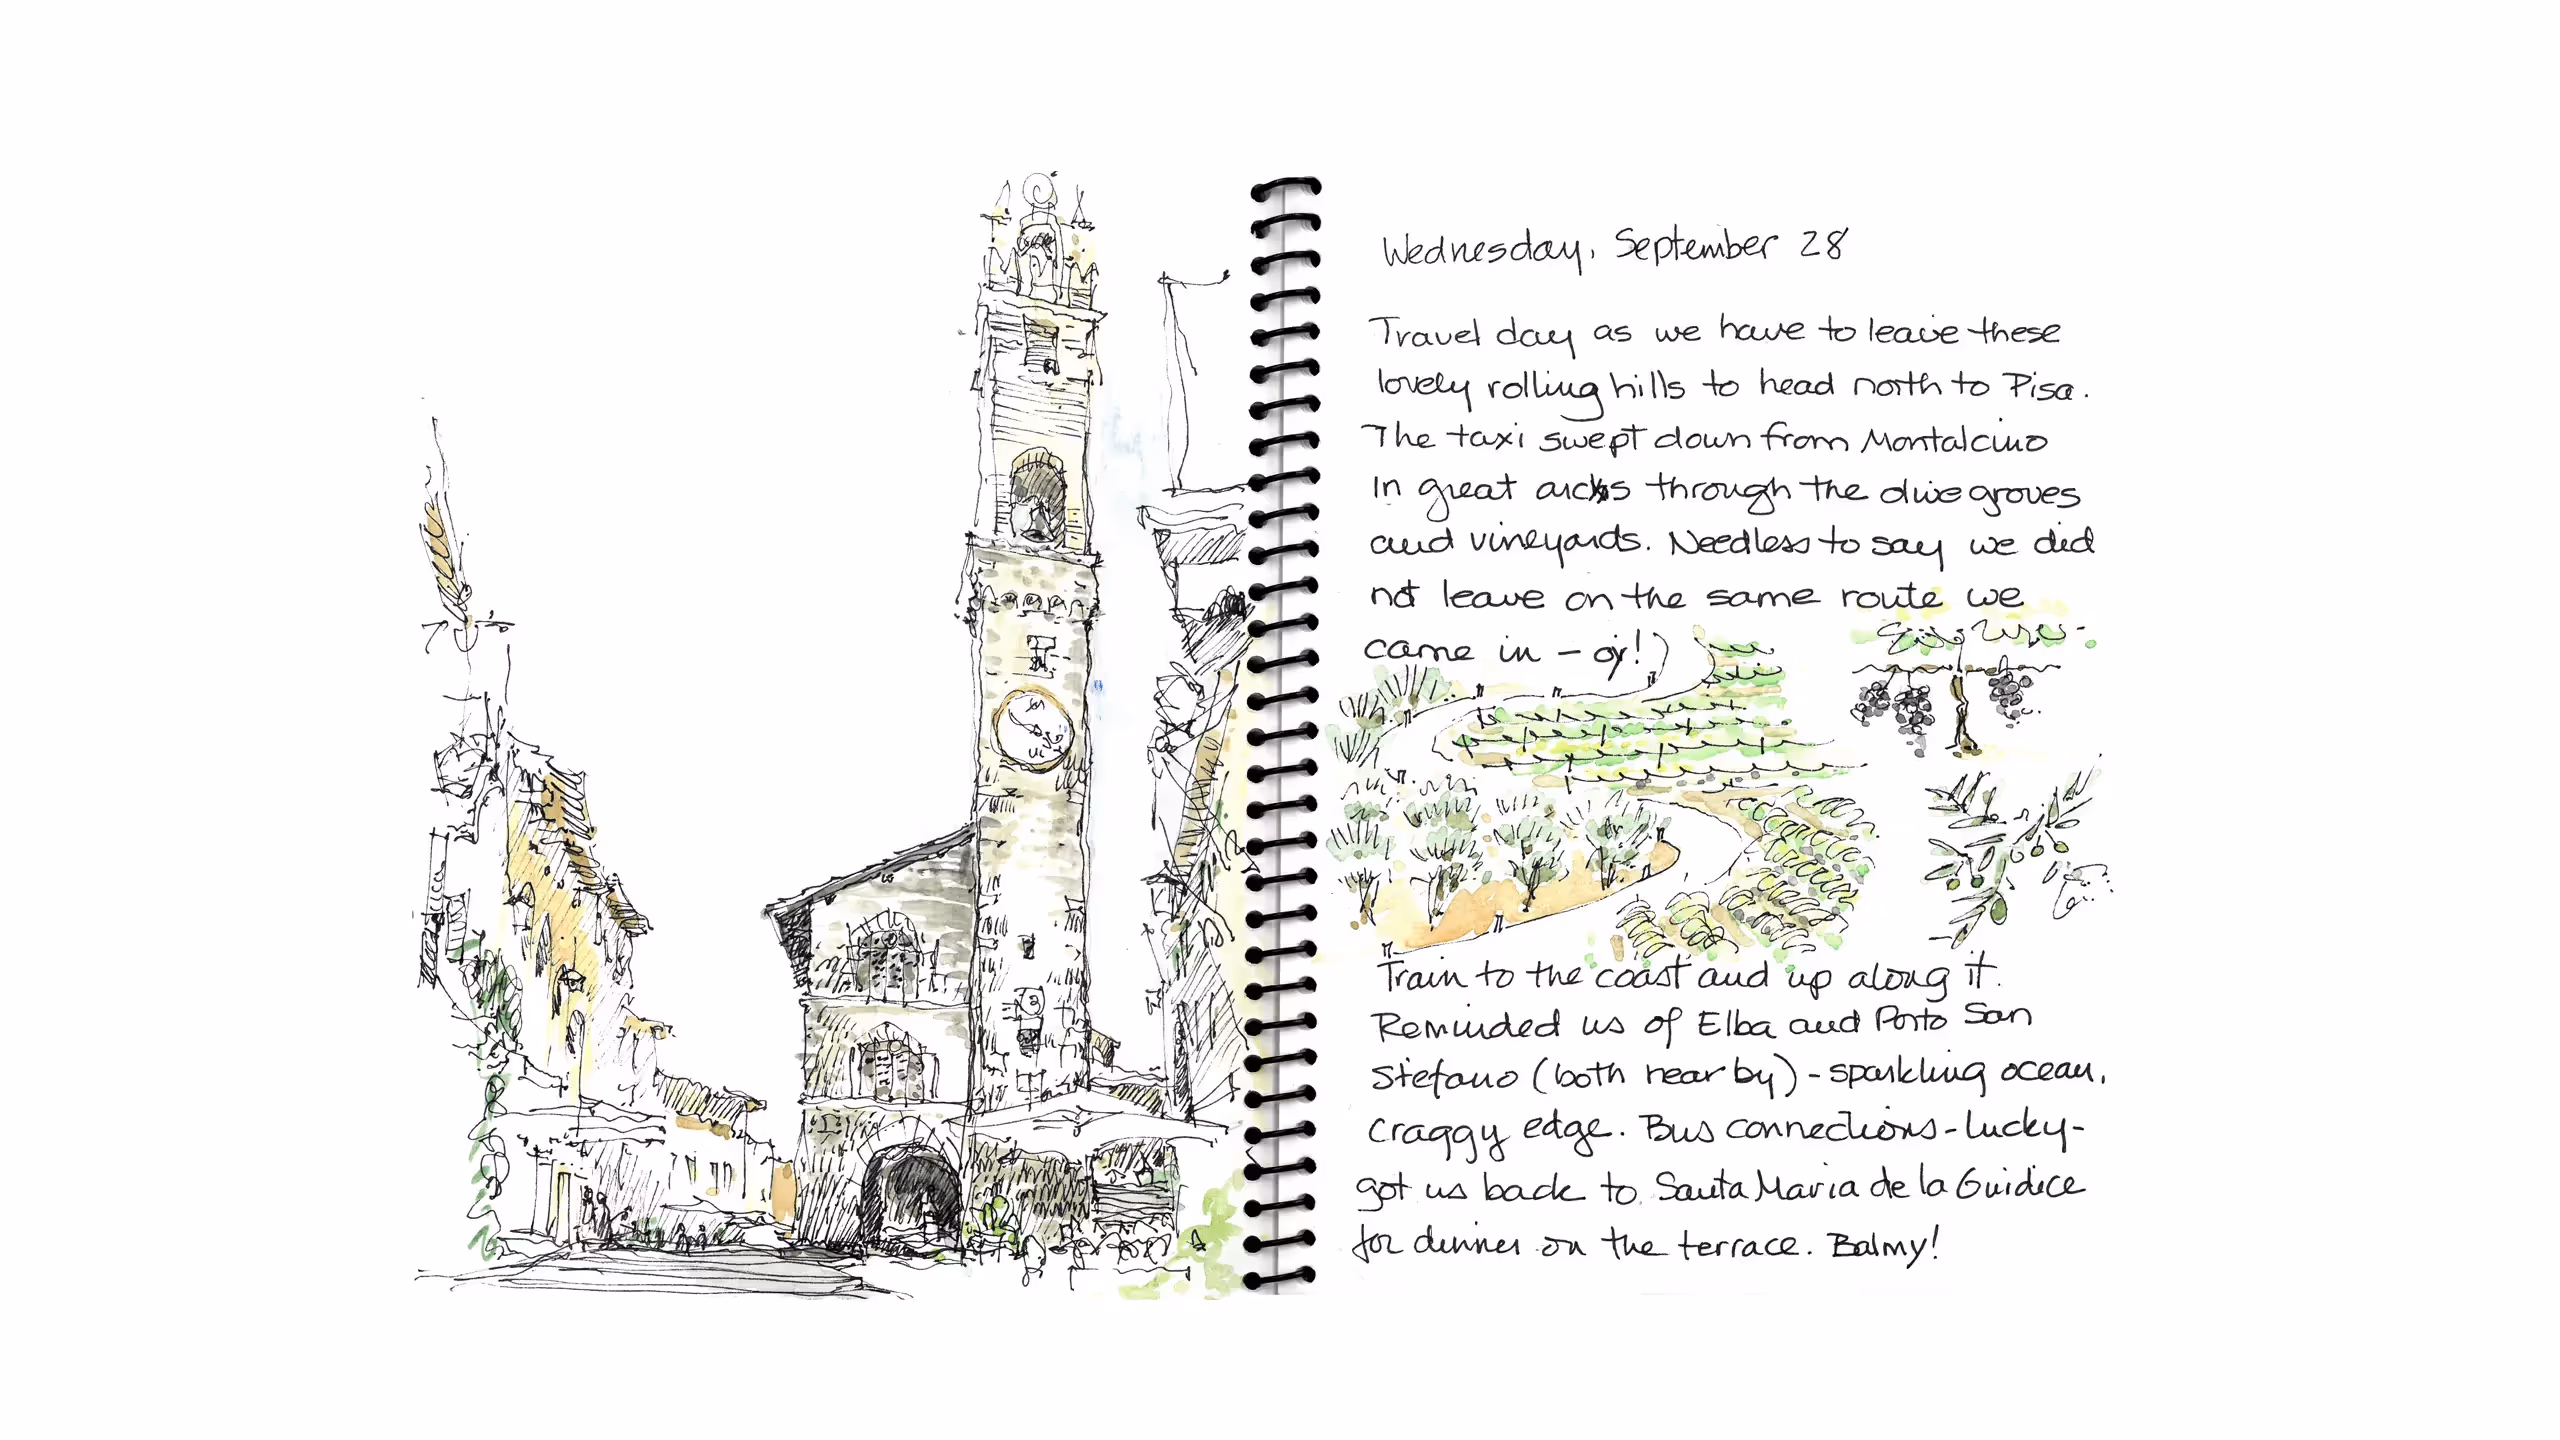 Wednesday, September 28
Travel day as we have to leave these
lovely rolling hills to head north to Pisa.
The taxi swept down from Montalcino
in great arcs through the olive groves
and vineyards. Needless to say we did
not leave on the same route we
came in - oy!
Train to the coast and up along it.
Reminded us of Elba and Porto San
Stefano (both near by) - sparkling ocean,
craggy edge. Bus connections - lucky -
got us back to Santa Maria de la Guidice
for dinner on the terrace. Balmy!